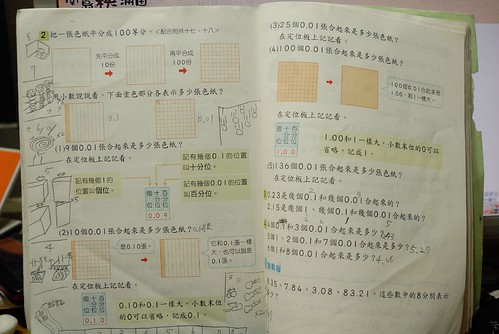 2 把一張色紙平分成100等分。〈配合附件十七、十八〉
先平分成
10份
再平分成
100份
用小數說說看，下面塗色部分各表示多少張色紙？
0.1
0.01
(1)9個0.01張合起來是多少張色紙？
在定位板上記記看。
記有幾個0.1的位置
叫十分位。
記有幾個1的位置
叫個位。
記有幾個0.01的位置
叫百分位。
個位 十分位 百分位
0.09
(2)10個0.01張合起來是多少張色紙？
是0.10張。
它和0.1張一樣
大，也可以說是
0.1張。
在定位板上記記看。
個位 十分位 百分位
0.10
0.10和0.1一樣大，小數末位
的0可以省略，記成0.1。
(3)25個0.01張合起來是多少張色紙？
在定位板上記記看。
(4)100個0.01張合起來是多少張色紙？
100個0.01合起來是
1.00，和1一樣大。
在定位板上記記看。
個位 十分位 百分位
1.00
1.00和1一樣大，小數末位的0可以
省略，記成1。
(5)136個0.01張合起來是多少張色紙？
在定位板上記記看。
0.23是幾個0.1和幾個0.01合起來的？
2.15是幾個1、幾個0.1和幾個0.01合起來的？
4個0.1和3個0.01合起來是多少？
5個1、2個0.1和7個0.01合起來是多少？5.27
個1和8個0.01合起來是多少？
8.35、7.84、3.08、83.21，這些數中的8分別表示
多少？